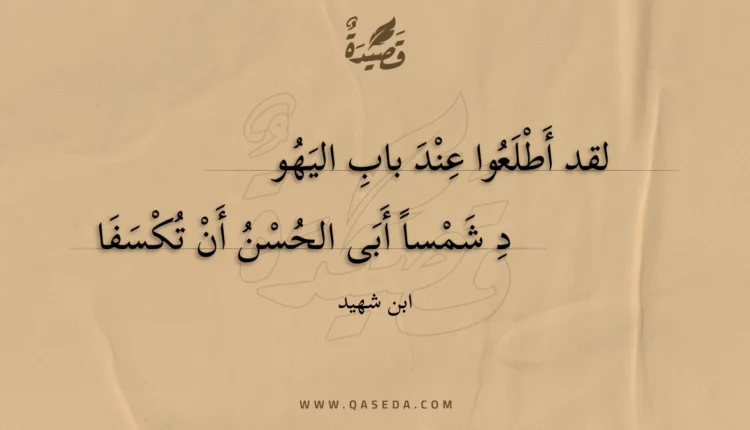 قَصِيدَةٌ
لقد أَطْلَعُوا عِنْدَ بابِ اليَهُو
دِ شَمْساً أَبَى الحُسْنُ أَنْ تُكْسَفَا
ابن شهيد
WWW.QASEDA.COM